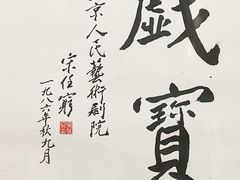 戯寶
京人民藝術剧院
宋任窮
一九八六年秋九月